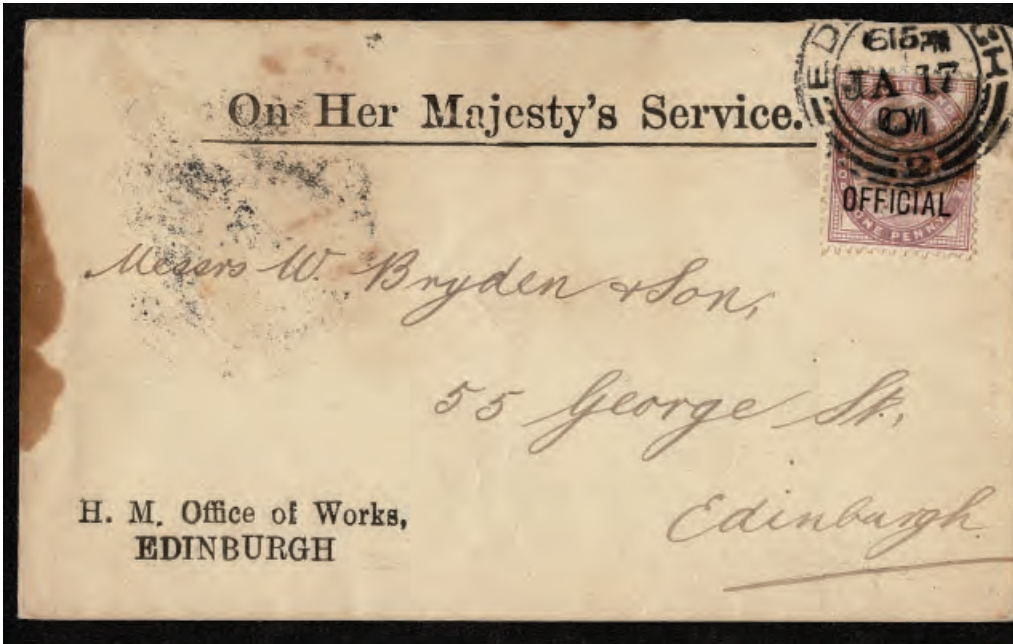 On Her Majesty's Service.
615PM
JA 17
2
OFFICIAL
ONE PENNY
Messrs W. Bryden & Son,
55 George St.,
Edinburgh
H. M. Office of Works,
EDINBURGH